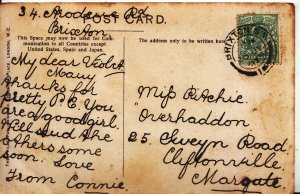 34. Arodene Rd
Brixton
POST CARD.
This Space may now be used for Com-
munication to all Countries except
United States, Spain and Japan.
The address only to be written here.
BRIXTON S.
My dear Violet
Many
thanks for
pretty P.C. You
are a good girl.
Will send the
others some
soon. Love
From Connie
Miss B Achie.
Overhaddon
25. Sweyn Road
Cliftonville
Margate.